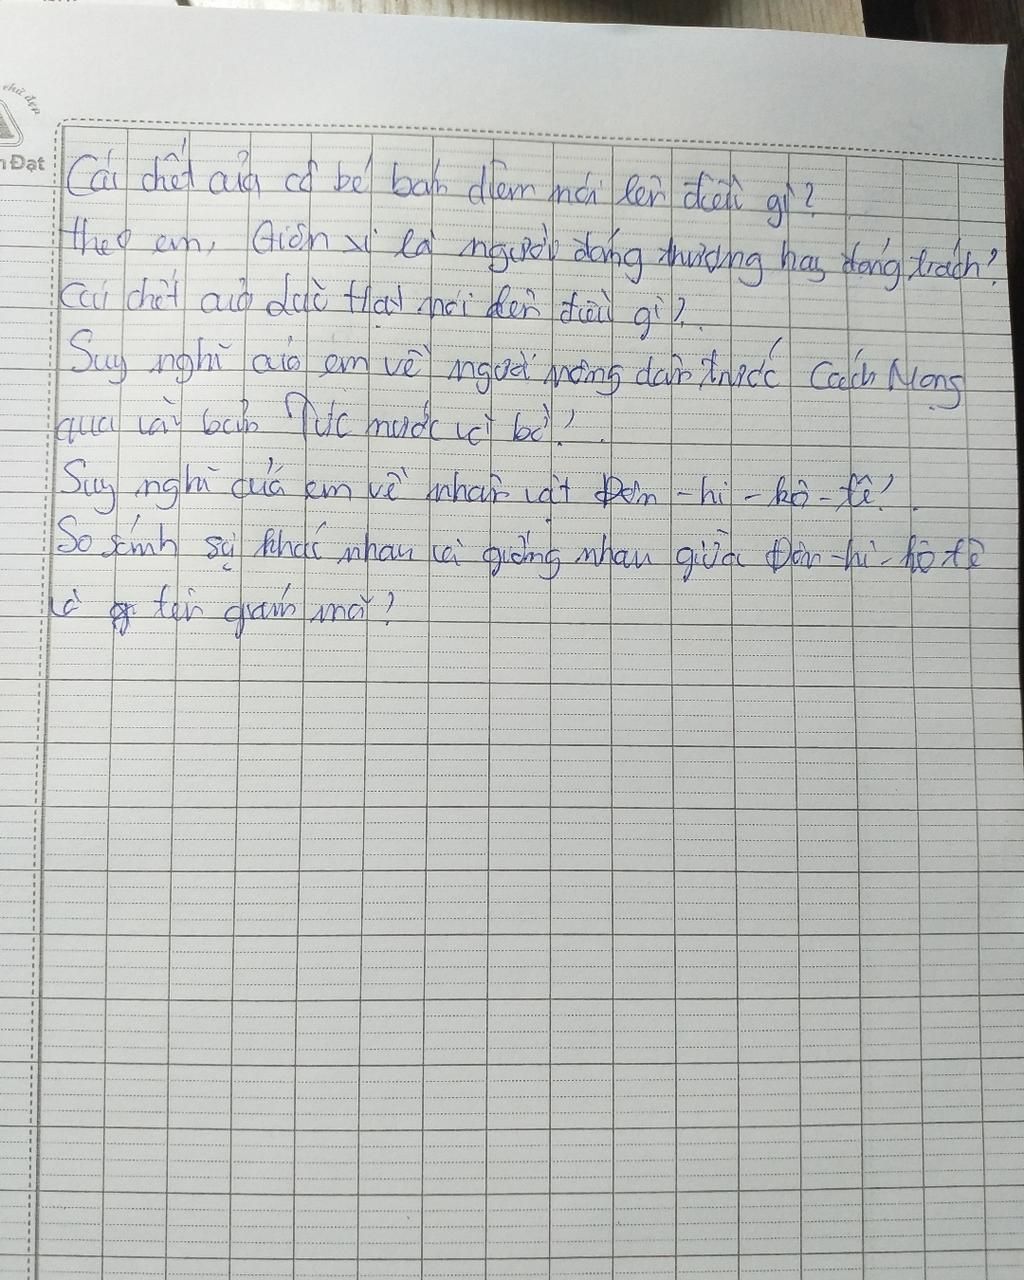 chữ đẹp
Đạt
Cái chết của cô bé bán diêm nói lên điều gì?
theo em, Giôn xi là người đáng thương hay đáng trách?
Cái chết của lão Hạc nói lên điều gì?
Suy nghĩ của em về người nông dân trước Cách Mạng
qua văn bản Tức nước vỡ bờ?
Suy nghĩ của em về nhân vật Đôn - ki - hô - tê?
So sánh sự khác nhau và giống nhau giữa Đôn - ki - hô tê
và tên giám mã?